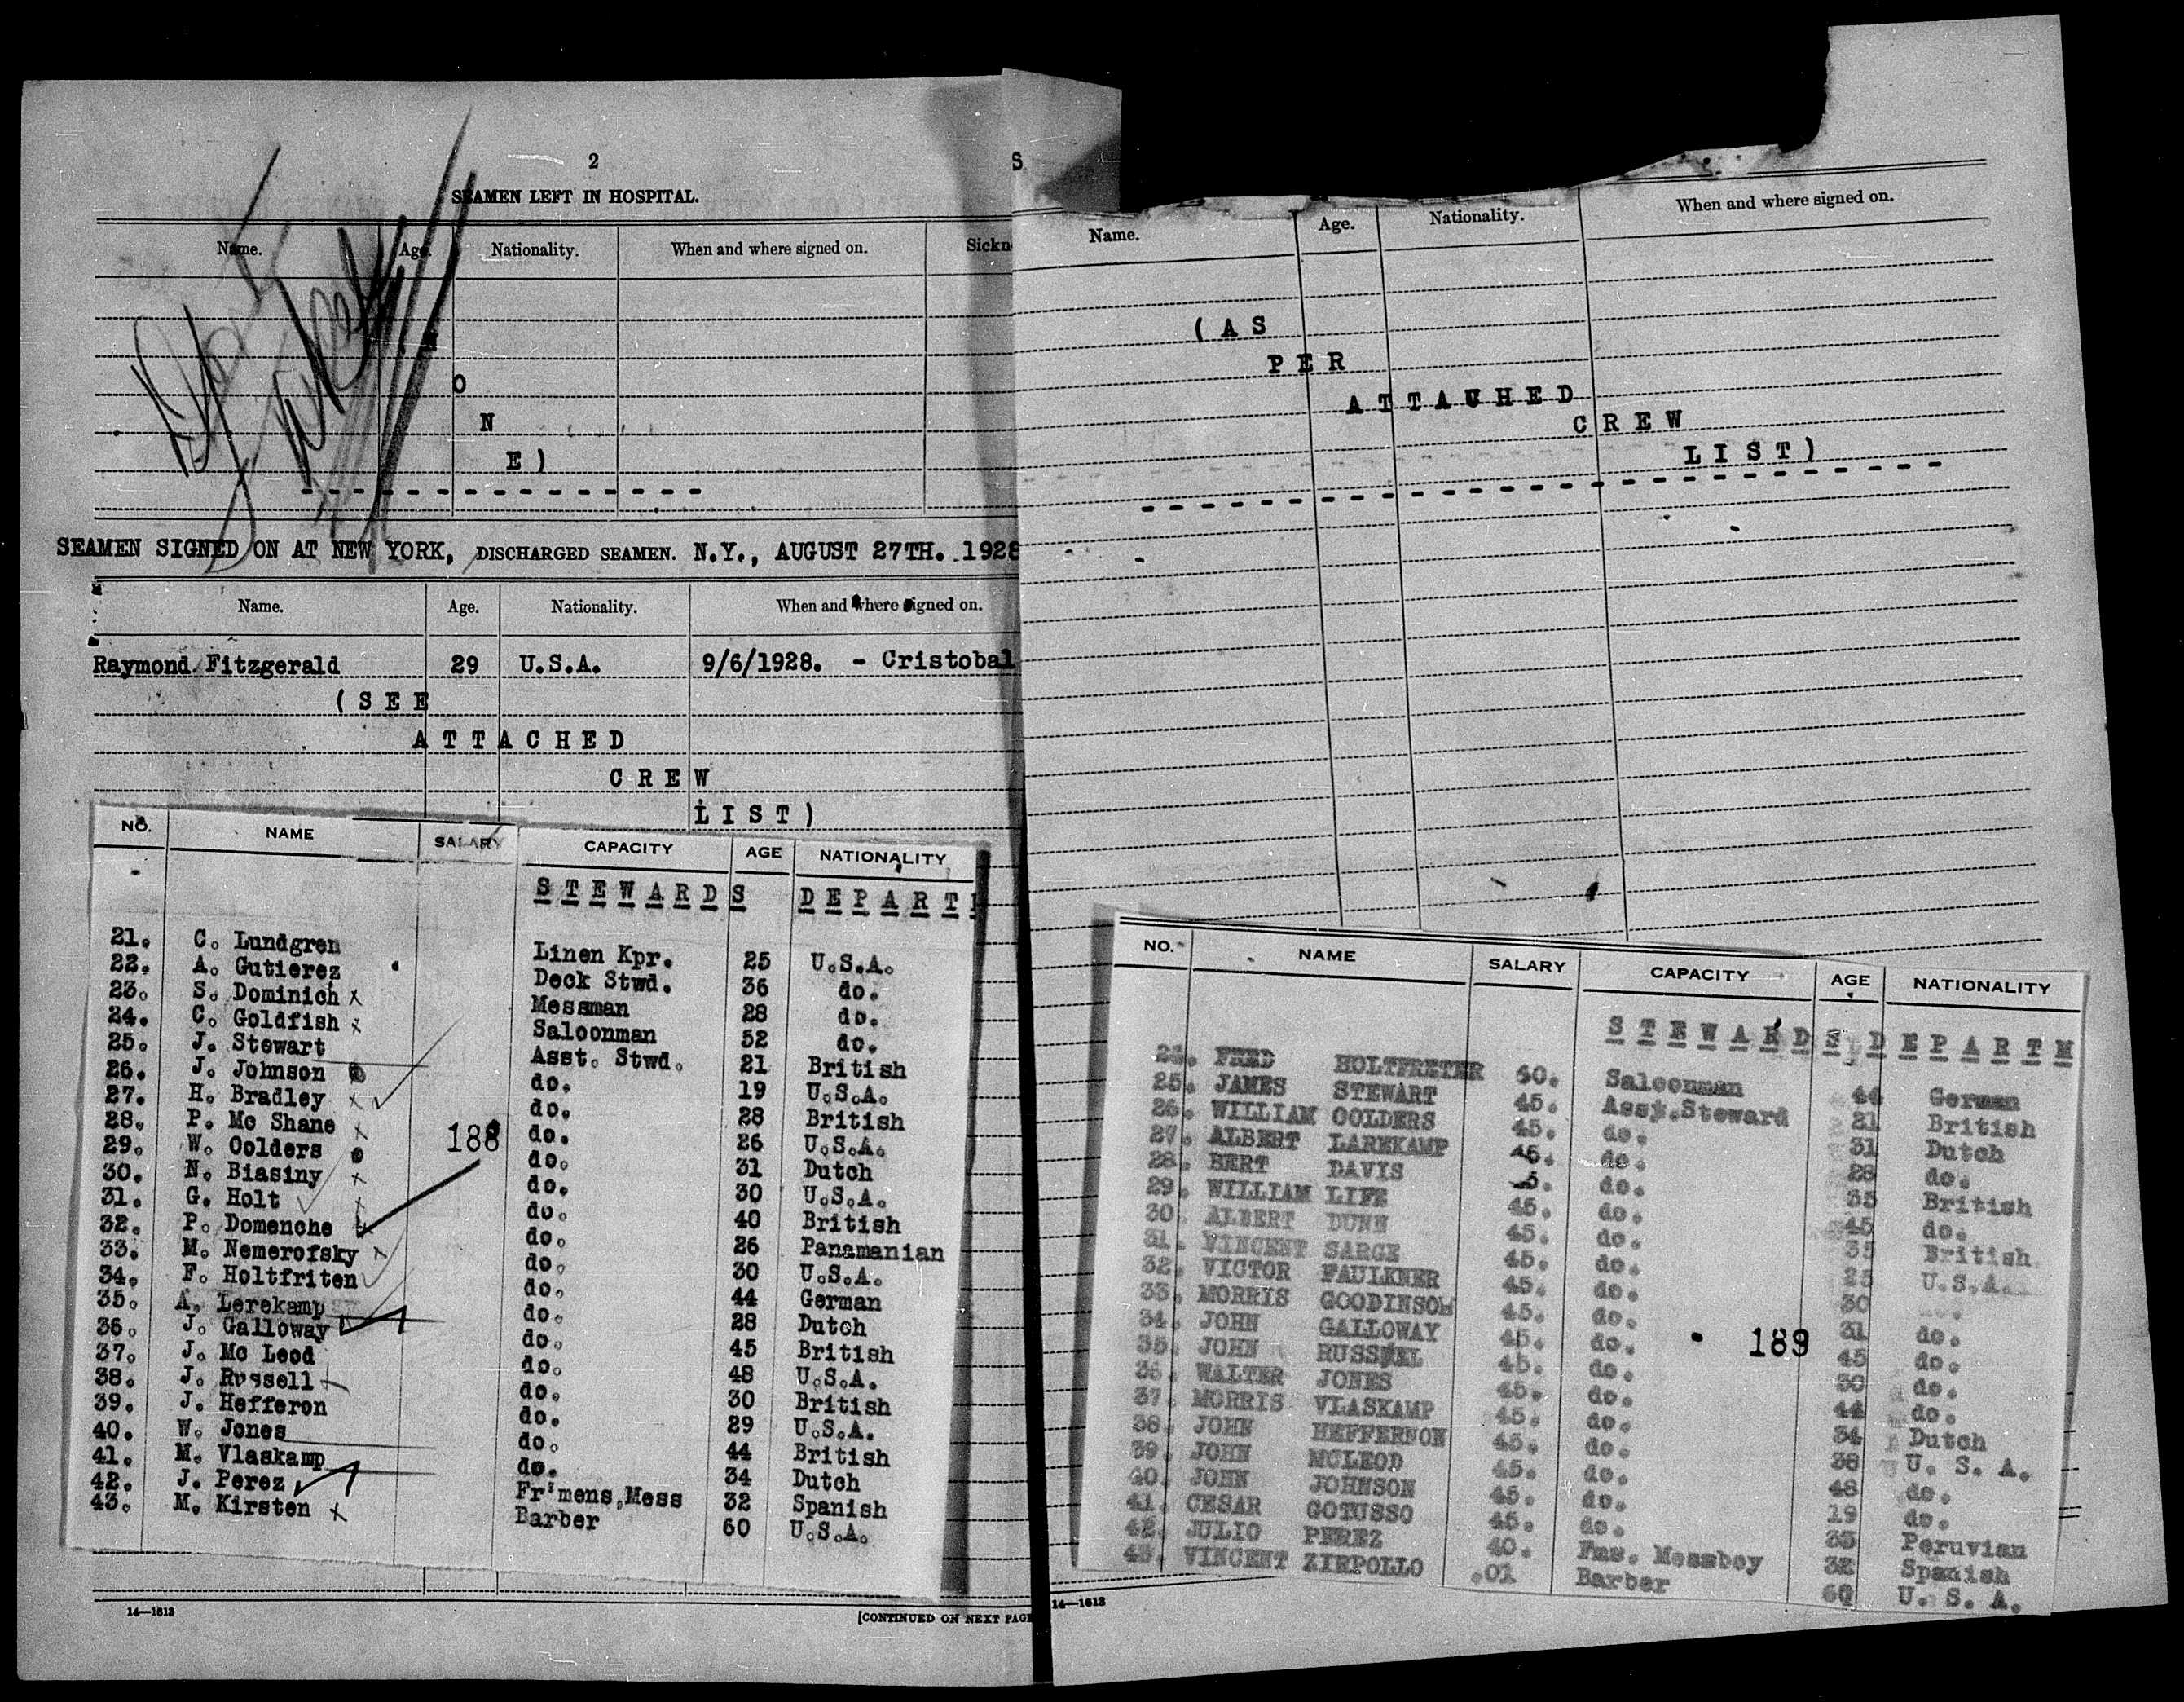 2
SEAMEN LEFT IN HOSPITAL.
Name. Age. Nationality. When and where signed on. Sickn
O
N
E)
SEAMEN SIGNED ON AT NEW YORK, DISCHARGED SEAMEN. N.Y., AUGUST 27TH. 1928
Name. Age. Nationality. When and where signed on.
Raymond Fitzgerald 29 U.S.A. 9/6/1928. - Cristobal
(SEE
ATTACHED
CREW
LIST)
NO. NAME SALARY CAPACITY AGE NATIONALITY
STEWARDS DEPART
21. C. Lundgren Linen Kpr. 25 U.S.A.
22. A. Gutierez Deck Stwd. 36 do.
23. S. Dominich x Messman 28 do.
24. C. Goldfish x Saloonman 52 do.
25. J. Stewart Asst. Stwd. 21 British
26. J. Johnson do. 19 U.S.A.
27. H. Bradley x do. 28 British
28. P. Mc Shane x do. 26 U.S.A.
29. W. Oolders do. 31 Dutch
30. N. Biasiny x do. 30 U.S.A.
31. G. Holt x do. 40 British
32. P. Domenche x do. 26 Panamanian
33. M. Nemerofsky x do. 30 U.S.A.
34. F. Holtfriten do. 44 German
35. A. Lerekamp do. 28 Dutch
36. J. Galloway do. 45 British
37. J. Mc Leod do. 48 U.S.A.
38. J. Russell do. 30 British
39. J. Hefferon do. 29 U.S.A.
40. W. Jones do. 44 British
41. M. Vlaskamp do. 34 Dutch
42. J. Perez Fr'mens,Mess 32 Spanish
43. M. Kirsten x Barber 60 U.S.A.
188
14—1613
[CONTINUED ON NEXT PAGE
S
Name. Age. Nationality. When and where signed on.
(AS
PER
ATTACHED
CREW
LIST)
NO. NAME SALARY CAPACITY AGE NATIONALITY
STEWARDS DEPARTM
FRED HOLTFRETER 60. Saloonman 44 German
25. JAMES STEWART 45. Asst.Steward 21 British
26. WILLIAM OOLDERS 45. do. 31 Dutch
27. ALBERT LAREKAMP 45. do. 28 do.
28. BERT DAVIS do. 35 British
29. WILLIAM LIFE 45. do. 45 do.
30. ALBERT DUNN 45. do. 35 British
31. VINCENT SARGE 45. do. 25 U.S.A.
32. VICTOR FAULKNER 45. do. 30
33. MORRIS GOODINSON 45. do. 31 do.
34. JOHN GALLOWAY 45. do. 45 do.
35. JOHN RUSSEL 45. do. 30 do.
36. WALTER JONES 45. do. 44 do.
37. MORRIS VLASKAMP 45. do. 34 Dutch
38. JOHN HEFFERNON 45. do. 38 U. S. A.
39. JOHN MCLEOD 45. do. 48 do.
40. JOHN JOHNSON 45. do. 19 do.
41. CESAR GOTUSSO 45. do. 35 Peruvian
42. JULIO PEREZ 40. Fms. Messboy 32 Spanish
43. VINCENT ZIRPOLLO .01 Barber 60 U. S. A.
189
14—1613